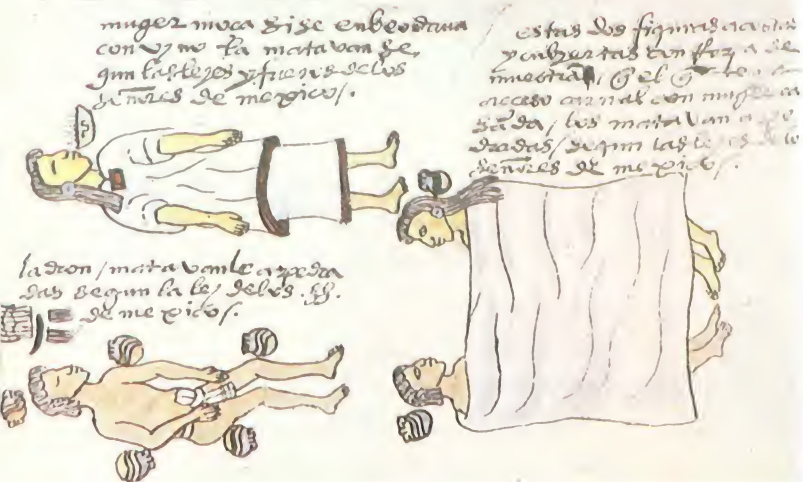 muger moça si se enbeodava
con vino la matavan se
gun las leyes y fueros de los
señores de mexico /.
estas dos figuras acostadas
y cubiertas con
muestran, q el q
acceso carnal con muger ca
sada / los matavan a pe
dradas / segun las leyes de los
señores de mexico /.
ladron / matavanle a pedra
das segun la ley de los .SS.
de mexico /.